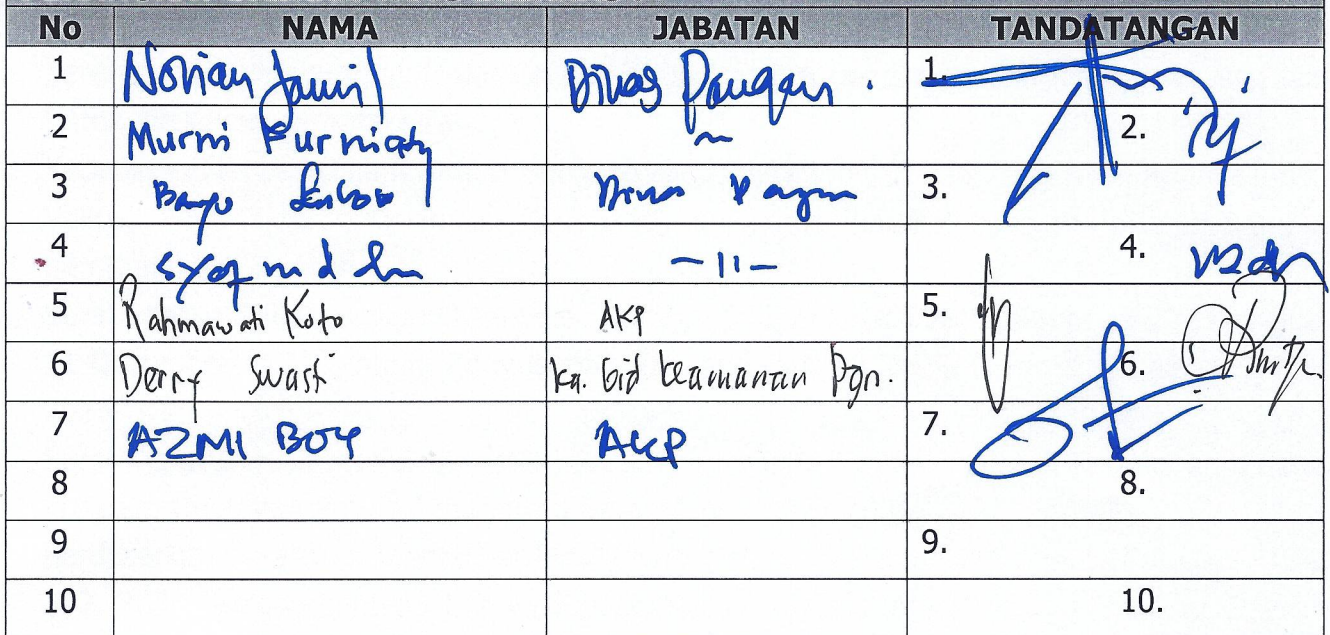 No NAMA JABATAN TANDATANGAN
1 Novian Jamil Dinas Pangan . 1.
2 Murni Kurniaty ~ 2.
3 Bayu Dinas Pangan 3.
4 - 11 - 4.
5 Rahmawati Koto AKP 5.
6 Derry Swasti Ka. bid keamanan Pgn. 6.
7 AZMI BOY AKP 7.
8 8.
9 9.
10 10.